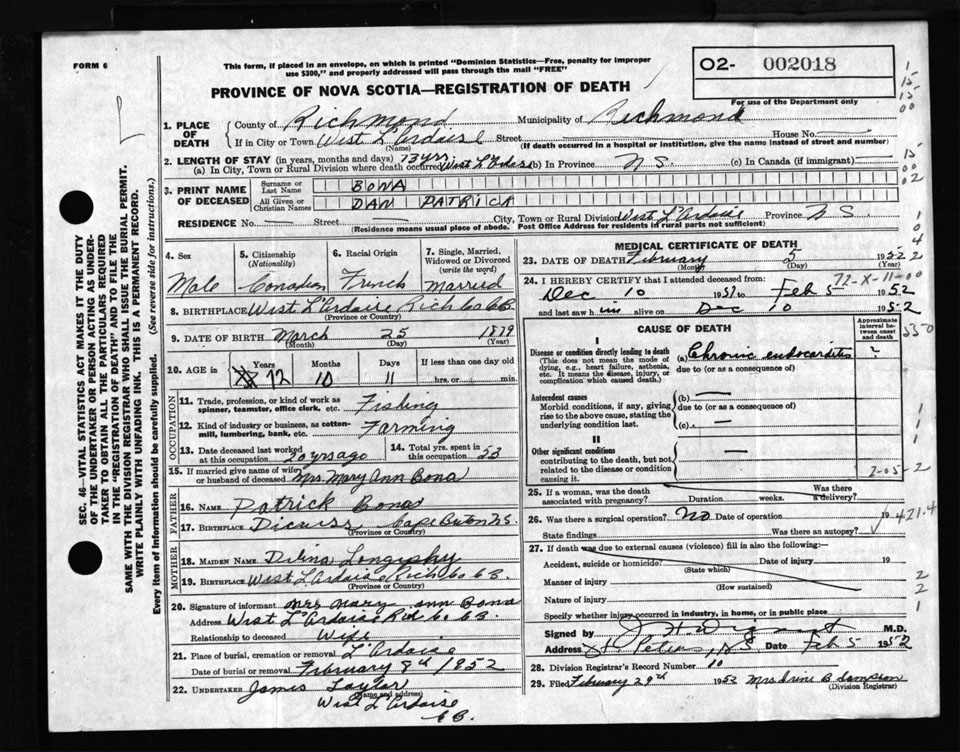 FORM 6
This form, if placed in an envelope, on which is printed "Dominion Statistics—Free, penalty for improper
use $300," and properly addressed will pass through the mail "FREE"
PROVINCE OF NOVA SCOTIA—REGISTRATION OF DEATH
O2- 002018
For use of the Department only
SEC. 46—VITAL STATISTICS ACT MAKES IT THE DUTY
OF THE UNDERTAKER OR PERSON ACTING AS UNDER-
TAKER TO OBTAIN ALL THE PARTICULARS REQUIRED
IN THE "REGISTRATION OF DEATH" AND TO FILE THE
SAME WITH THE DIVISION REGISTRAR WHO SHALL ISSUE THE BURIAL PERMIT.
WRITE PLAINLY WITH UNFADING INK. THIS IS A PERMANENT RECORD.
Every item of information should be carefully supplied. (See reverse side for instructions.)
1. PLACE OF DEATH
County of Richmond Municipality of Richmond
If in City or Town West L'Ardoise Street House No.
(Name) (If death occurred in a hospital or institution, give the name instead of street and number)
2. LENGTH OF STAY (in years, months and days) 73 yrs
(a) In City, Town or Rural Division where death occurred West L'Ardoise (b) In Province N S. (c) In Canada (if immigrant)
3. PRINT NAME OF DECEASED
Surname or Last Name BONA
All Given or Christian Names DAN PATRICK
RESIDENCE No. Street City, Town or Rural Division West L'Ardoise Province N S.
(Residence means usual place of abode. Post Office Address for residents in rural parts not sufficient)
4. Sex Male
5. Citizenship (Nationality) Canadian
6. Racial Origin French
7. Single, Married, Widowed or Divorced (write the word) Married
8. BIRTHPLACE West L'Ardoise Rich Co CB
(Province or Country)
9. DATE OF BIRTH March 25 1879
(Month) (Day) (Year)
10. AGE in Years 72 Months 10 Days 11 If less than one day old hrs. or min.
OCCUPATION
11. Trade, profession, or kind of work as spinner, teamster, office clerk, etc. Fishing
12. Kind of industry or business, as cotton-mill, lumbering, bank, etc. Farming
13. Date deceased last worked at this occupation 20 yrs ago
14. Total yrs. spent in this occupation 53
15. If married give name of wife or husband of deceased Mrs. Mary Ann Bona
FATHER
16. NAME Patrick Bona
17. BIRTHPLACE Cape Breton N S.
(Province or Country)
MOTHER
18. MAIDEN NAME
19. BIRTHPLACE West L'Ardoise Rich Co C B.
(Province or Country)
20. Signature of informant Mrs Mary Ann Bona
Address West L'Ardoise Rich Co CB
Relationship to deceased Wife
21. Place of burial, cremation or removal L'Ardoise
Date of burial or removal February 8th 1952
22. UNDERTAKER James Taylor
(Name and address)
West L'Ardoise
C B.
MEDICAL CERTIFICATE OF DEATH
23. DATE OF DEATH February 5 1952
(Month) (Day) (Year)
24. I HEREBY CERTIFY that I attended deceased from:
Dec 10 1951 to Feb 5 1952
and last saw him alive on Dec 10 1952
72-X-11-00
CAUSE OF DEATH
Approximate interval between onset and death
I
Disease or condition directly leading to death (a) Chronic endocarditis ?
(This does not mean the mode of dying, e.g., heart failure, asthenia, etc. It means the disease, injury, or complication which caused death.)
due to (or as a consequence of)
Antecedent causes (b) —
Morbid conditions, if any, giving rise to the above cause, stating the underlying condition last.
due to (or as a consequence of)
(c) —
II
Other significant conditions
contributing to the death, but not related to the disease or condition causing it.
2-05-2
25. If a woman, was the death associated with pregnancy? Duration weeks. Was there a delivery?
26. Was there a surgical operation? No Date of operation 19
421.4
State findings Was there an autopsy?
27. If death was due to external causes (violence) fill in also the following:—
Accident, suicide or homicide? Date of injury 19
(State which)
Manner of injury
(How sustained)
Nature of injury
Specify whether injury occurred in industry, in home, or in public place
Signed by M.D.
Address St Peters, N S Date Feb 5 1952
28. Division Registrar's Record Number 10
29. Filed February 29th 1952 Mrs Irene B Sampson
(Division Registrar)